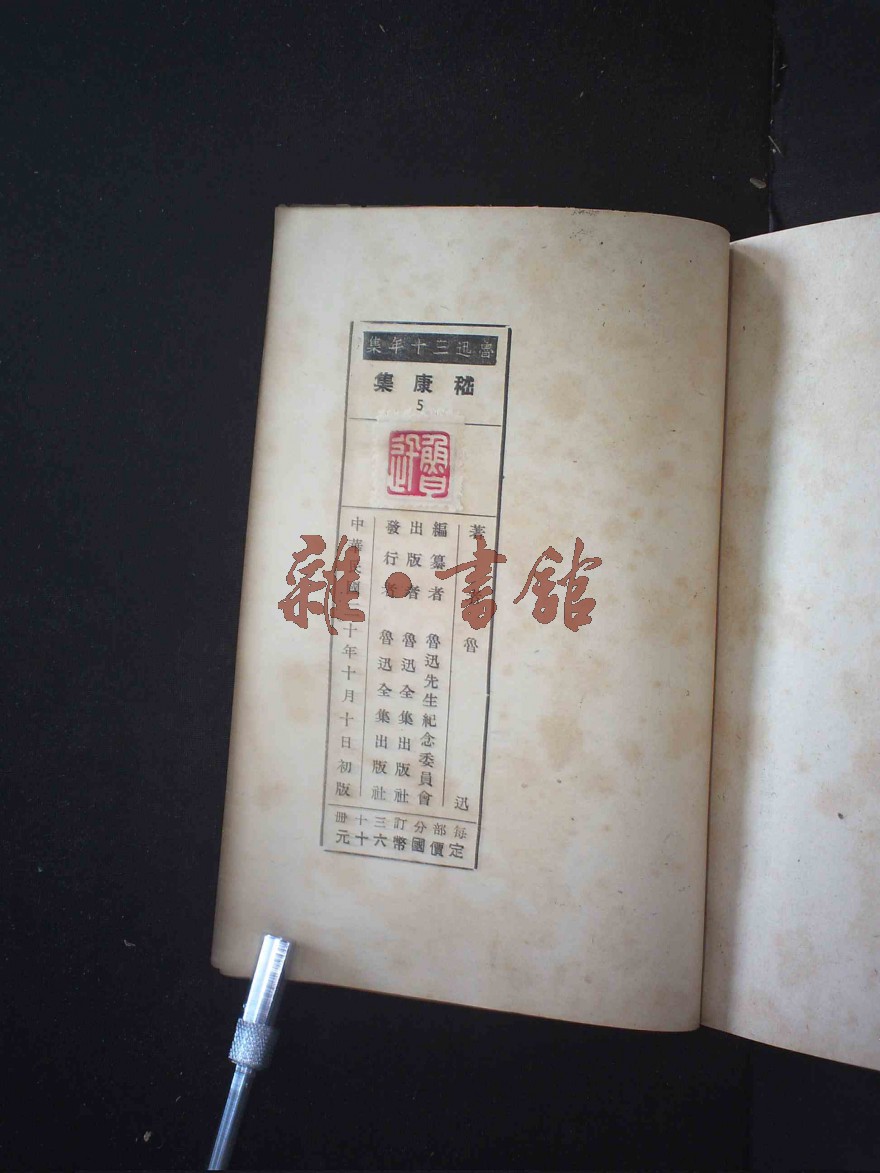 魯迅三十年集
嵇康集
5
魯迅
著者 魯迅
編纂者 魯迅先生紀念委員會
出版者 魯迅全集出版社
發行者 魯迅全集出版社
中華民國三十年十月十日初版
每部分訂三十冊
定價國幣六十元
雜·書館